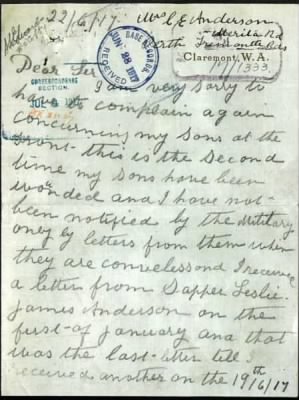 22/6/17.
Mrs C E Anderson
Claremont, W.A.
1333
BASE RECORDS.
JUN 28 1917
RECEIVED
Dear Sir
CORRESPONDENCE
SECTION
I am very sorry to
have to complain again
concerning my sons at the
front - this is the second
time my sons have been
wonded and I have not-
been notified by the Military
oney by letters from them when
they are convelessond I receive
a letter from Sapper Leslie.
James Anderson on the
first-of January and that
was the last-letter till I
received another on the 19th/6/17